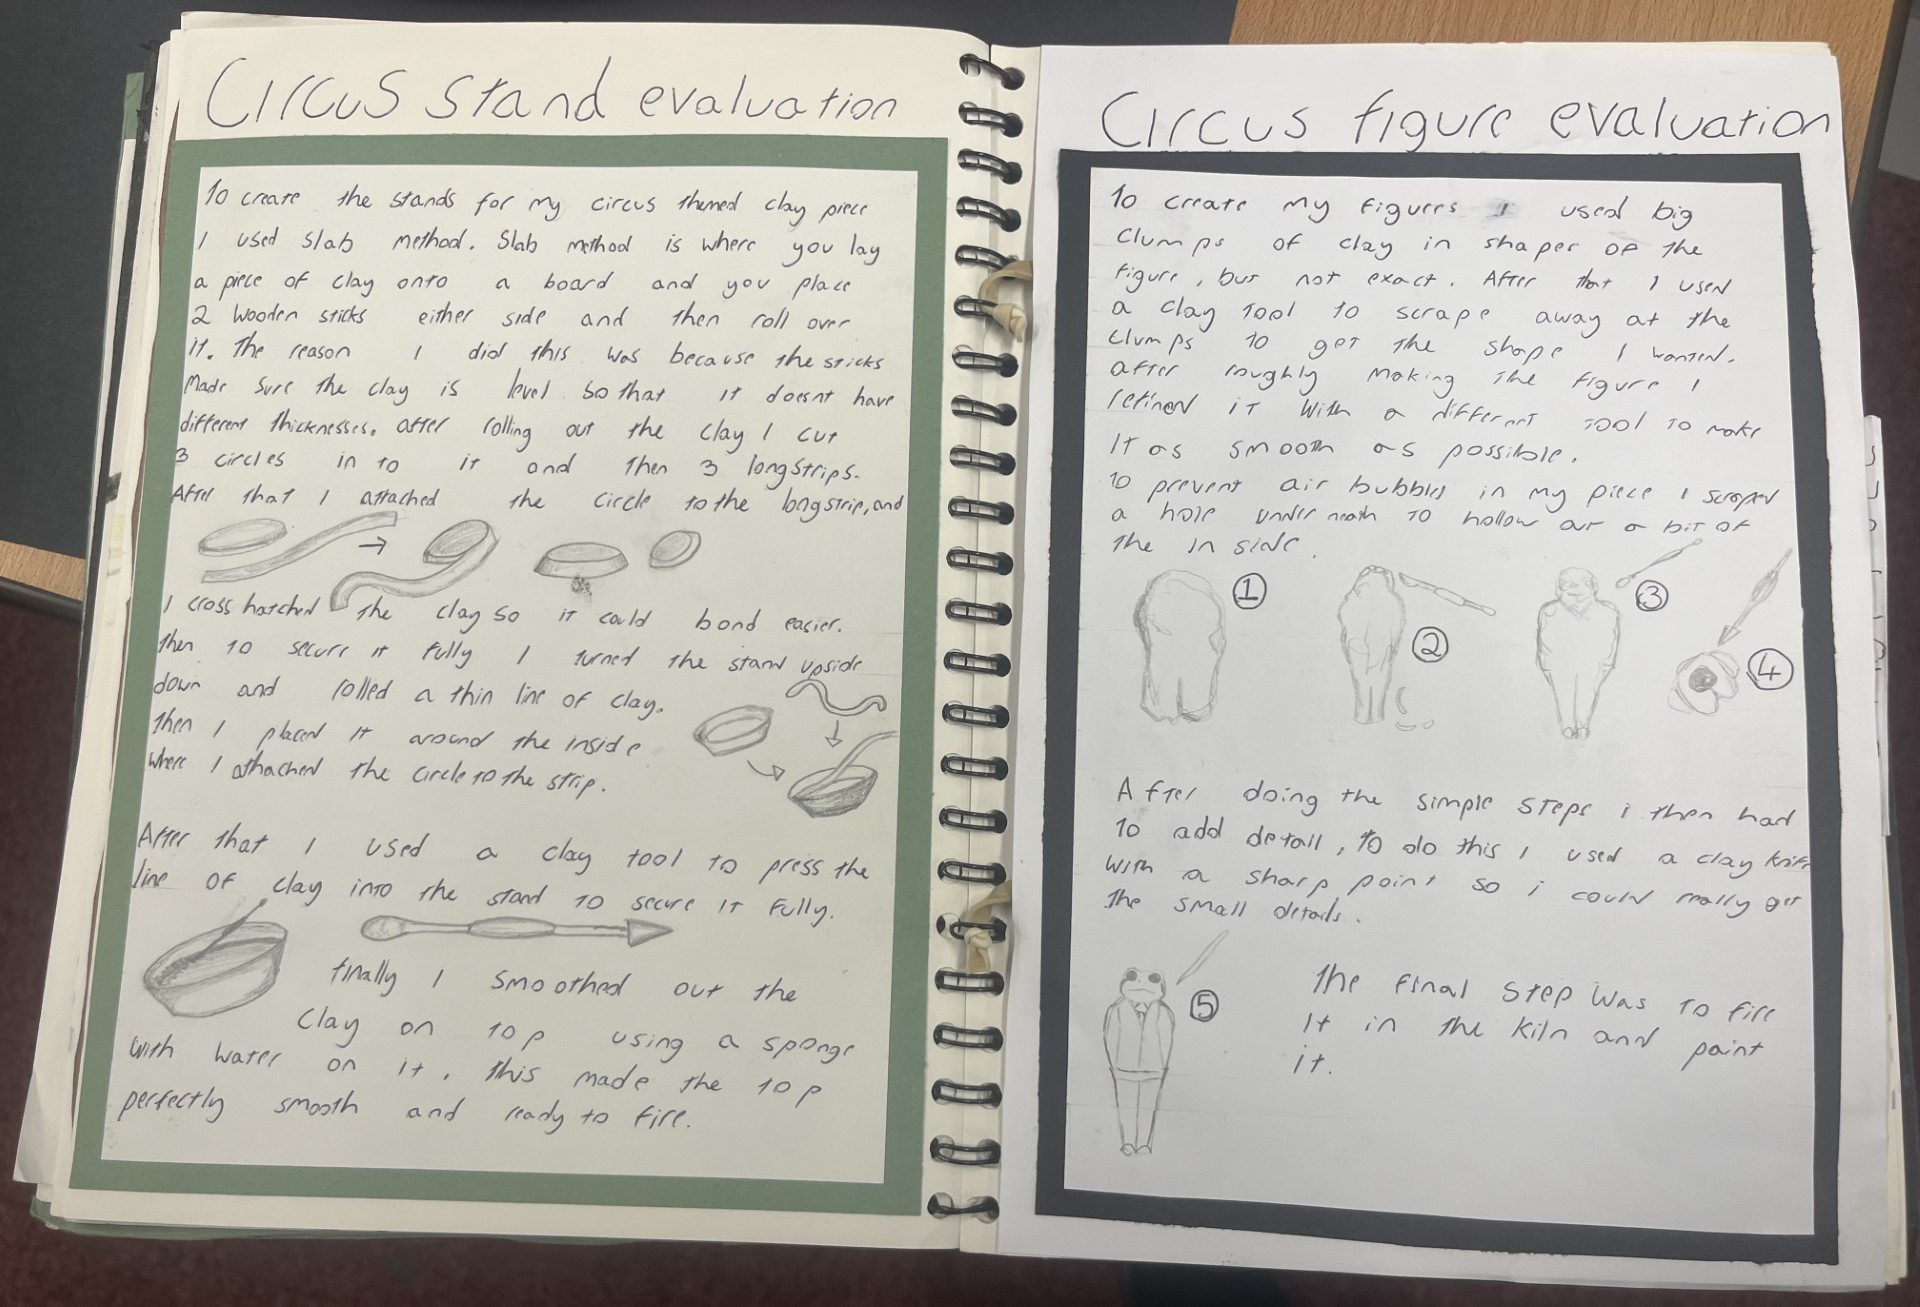 Circus stand evaluation
To create the stands for my circus themed clay piece
I used slab method. Slab method is where you lay
a piece of clay onto a board and you place
2 wooden sticks either side and then roll over
it. The reason I did this was because the sticks
made sure the clay is level so that it doesnt have
different thicknesses. after rolling out the clay I cut
3 circles in to it and then 3 long strips.
After that I attached the circle to the long strip, and
I cross hatched the clay so it could bond easier.
then to secure it fully I turned the stand upside
down and rolled a thin line of clay.
Then I placed it around the inside
where I attached the circle to the strip.
After that I used a clay tool to press the
line of clay into the stand to secure it fully.
finally I smoothed out the
clay on top using a sponge
with water on it, this made the top
perfectly smooth and ready to fire.
Circus figure evaluation
To create my figures I used big
clumps of clay in shapes of the
figure, but not exact. After that I used
a clay tool to scrape away at the
clumps to get the shape I wanted.
after roughly making the figure I
refined it with a different tool to make
it as smooth as possible.
to prevent air bubbles in my piece I scraped
a hole underneath to hollow out a bit of
the in side.
1
2
3
4
After doing the simple steps i then had
to add detail, to do this I used a clay knife
with a sharp point so i could really get
the small details.
5
The final step was to fire
it in the kiln and paint
it.